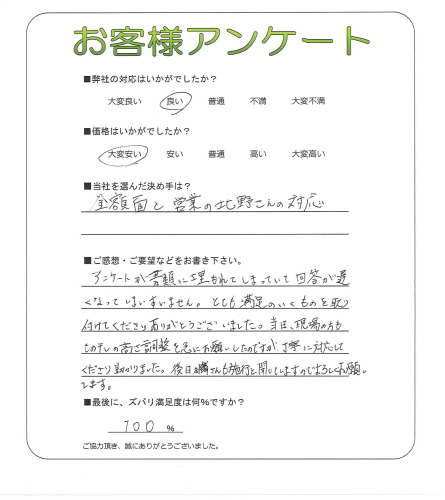 お客様アンケート
■弊社の対応はいかがでしたか?
大変良い 良い 普通 不満 大変不満
■価格はいかがでしたか?
大変安い 安い 普通 高い 大変高い
■当社を選んだ決め手は?
金額面と営業の北野さんの対応
■ご感想・ご要望などをお書き下さい。
アンケートが書類に埋もれてしまっていて回答が遅
くなってしまいすいません。とても満足のいくものを取り
付けてくださりありがとうございました。当日、現場の方も
の高さ調整を急にお願いしたのですが丁寧に対応して
くださり助かりました。後日 さんも施行と聞いてしますのでよろしくお願い
します。
■最後に、ズバリ満足度は何%ですか?
100 %
ご協力頂き、誠にありがとうございました。